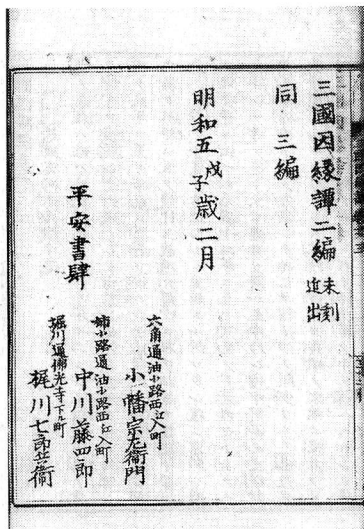 三國因縁譚二編 未刻
近出
同 三編
明和五戊子歳二月
平安書肆
六角通油小路西江入町
小幡宗左衛門
姉小路通油小路西江入町
中川藤四郎
堀川通佛光寺下ル町
梶川七郎兵衛